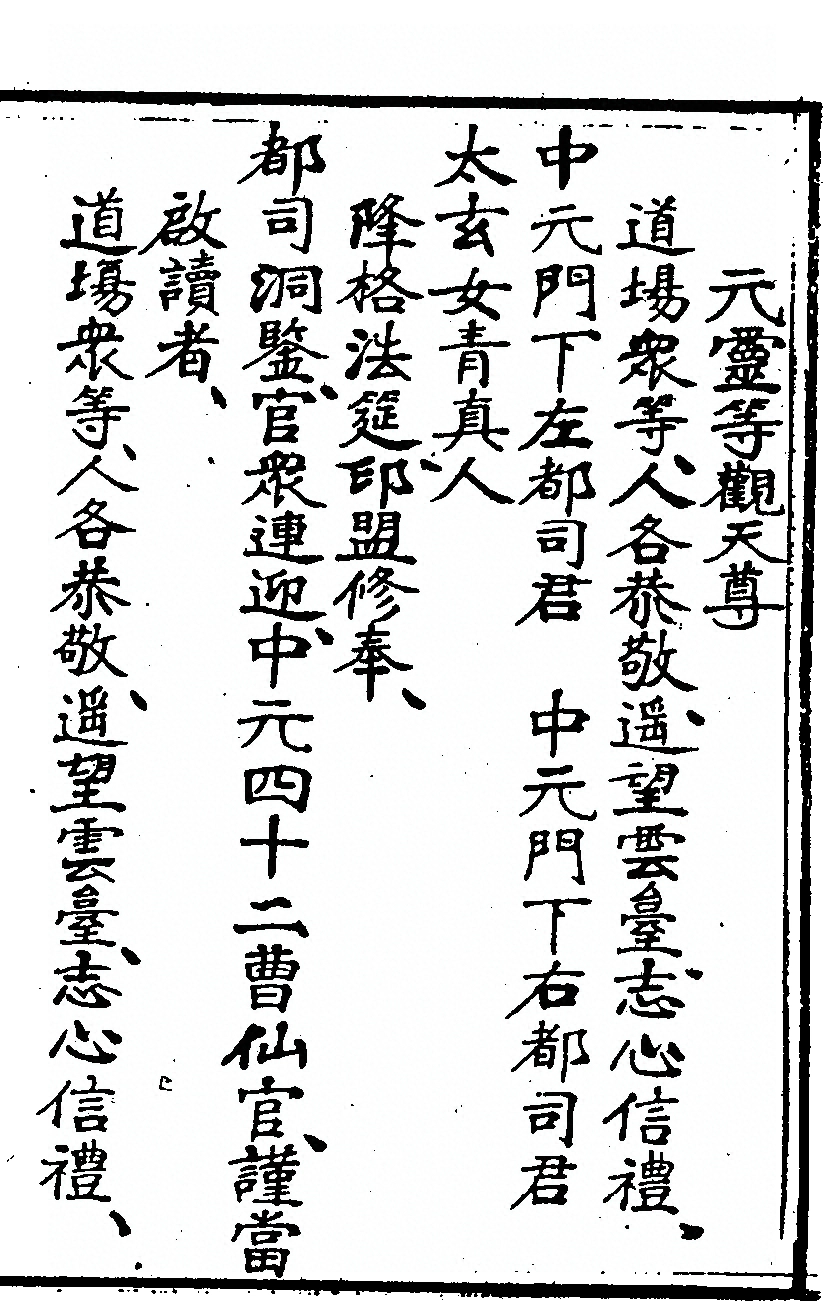 元靈等觀天尊
道場衆等、人各恭敬、遥望雲臺、志心信禮、
中元門下左都司君　中元門下右都司君
太玄女青真人
隆格法筵、印盟修奉、
都司洞鑒、官衆連迎、中元四十二曹仙官、謹當
啟讀者、
道場衆等、人各恭敬、遥望雲臺、志心信禮、